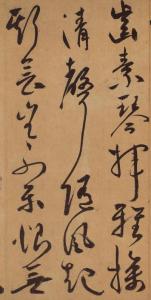 齒素琴揮雅操
清聲隨風起
斯會豈不樂恨無